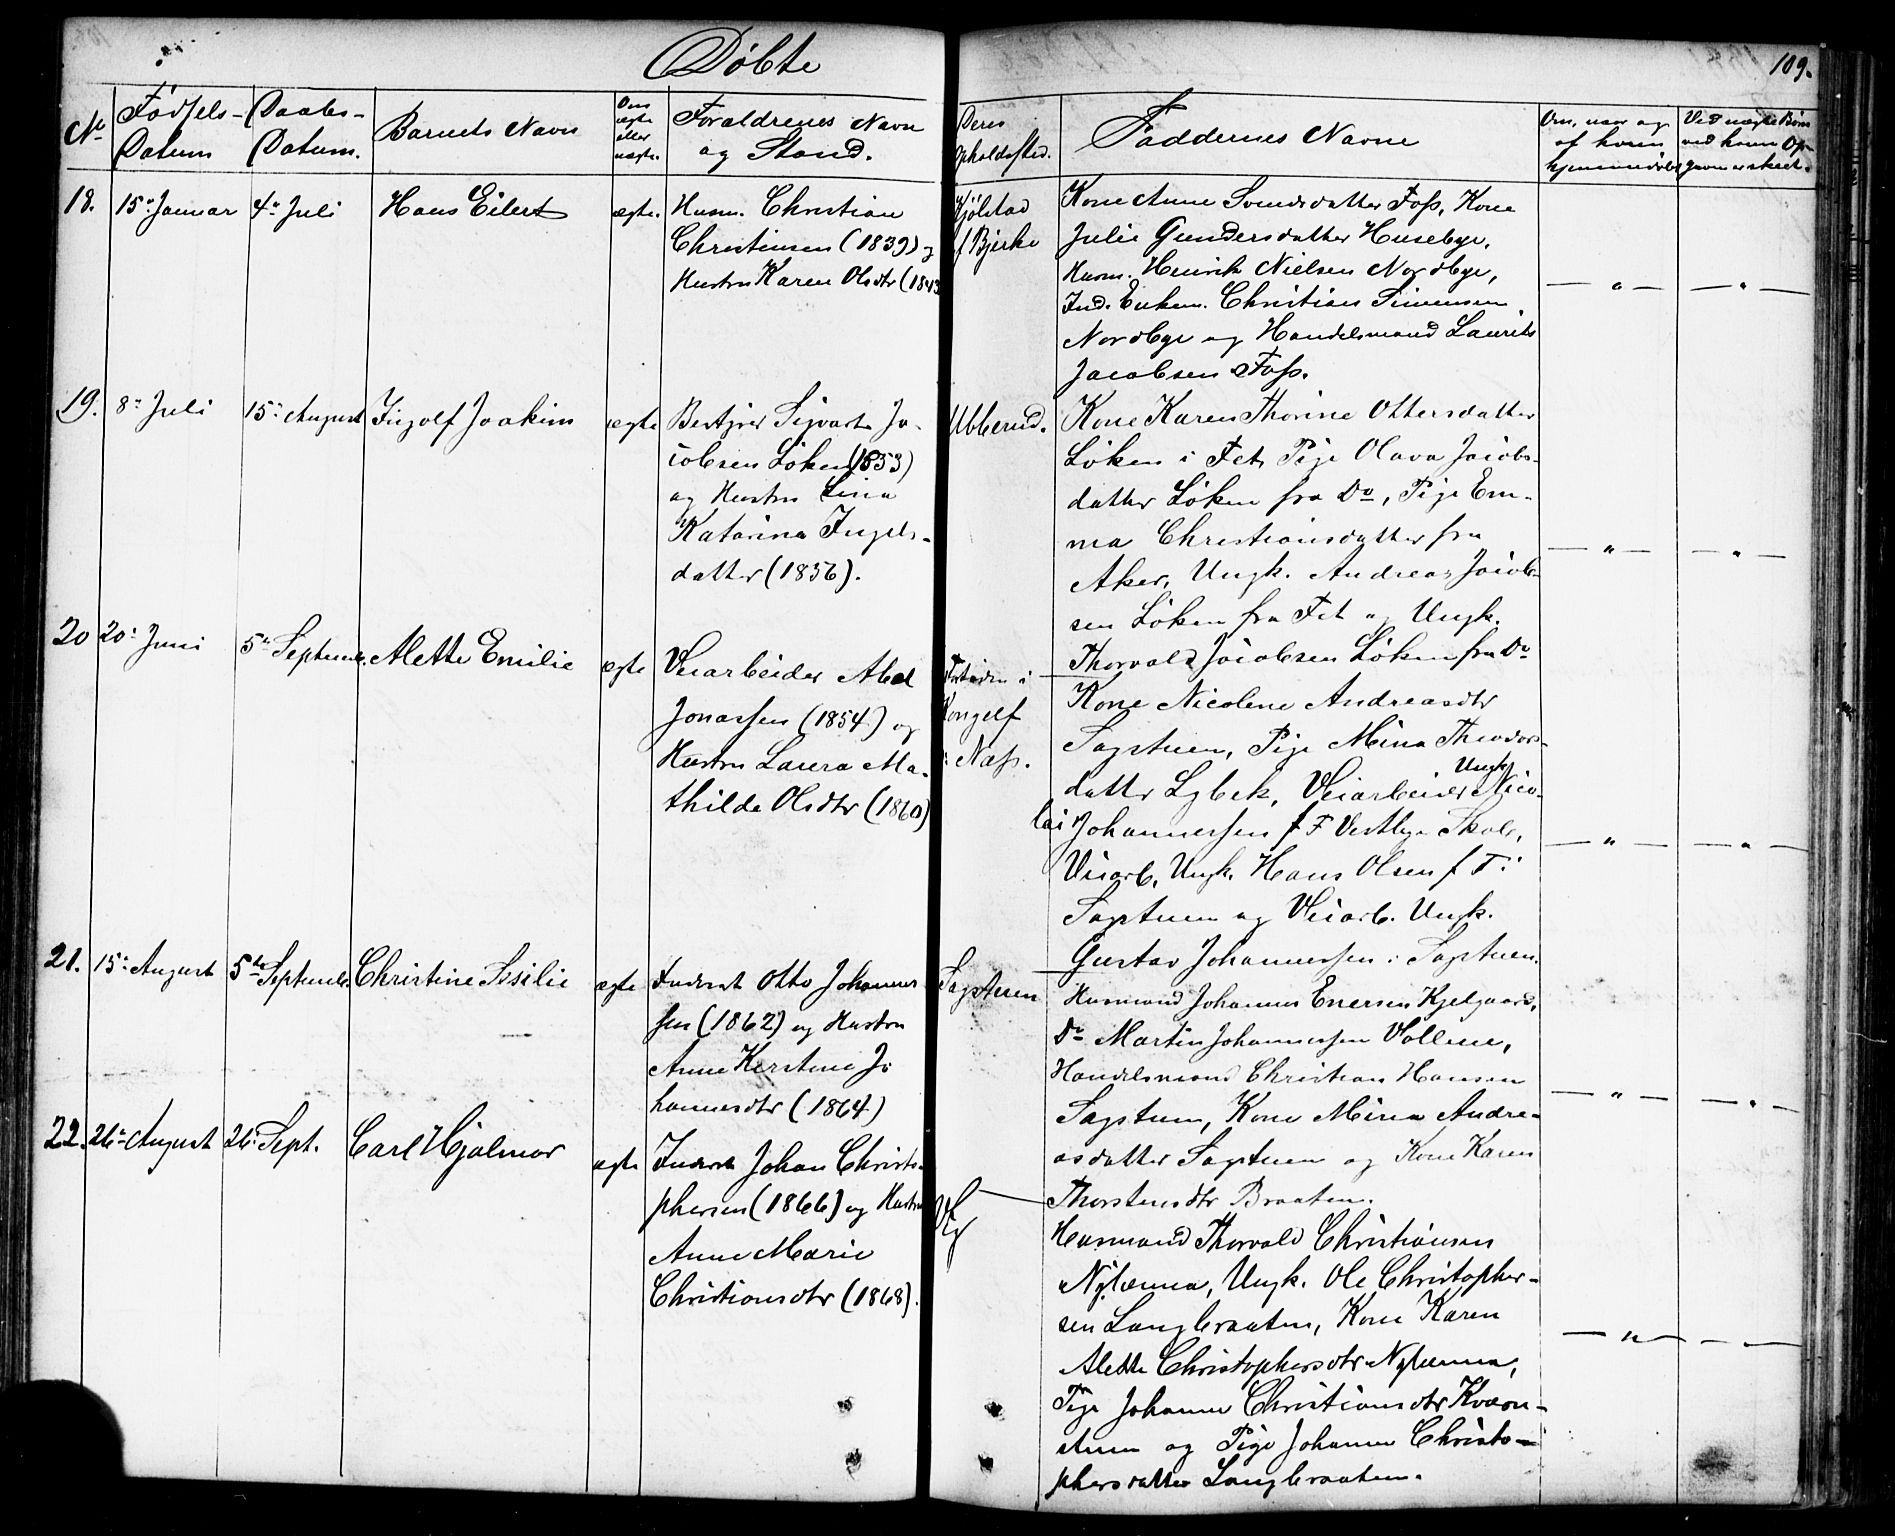 Døbte
109.
No
Fødsels-
Datum
Daabs-
Datum.
Barnets Navn
Om
ægte
eller
uægte.
Forældrenes Navn
og Stand.
Deres
Opholdssted.
Faddernes Navne
Om, naar og
af hvem
hjemmedøbt
Ved uægte Børn
ved hvem Op-
gaven er skeet.
18.
15de Januar
4de Juli
Hans Eilert
ægte.
Husm. Christian
Christiansen (1839) og
Hustru Karen Olsdtr (1843
Kjølstad
f Bjerke
Kone Anne Svendsdatter Foss, Kone
Julie Gundersdatter Husebye,
Husm. Henrik Nielsen Nordbye,
Ind. Enkem. Christian Simensen
Nordbye og Handelsmand Laurits
Jacobsen Foss.
— " —
— " —
19.
8de Juli
15de August
Ingolf Joakim
ægte
Bestyrer Sigvart Ja-
cobsen Løken (1853)
og Hustru Lina
Katarina Ingels-
datter (1856).
Ubberud.
Kone Karen Thorine Ottersdatter
Løken i Fet, Pige Olava Jacobs-
datter Løken fra Do, Pige Em-
ma Christiansdatter fra
Aker, Ungk. Andreas Jacob-
sen Løken fra Fet og Ungk.
Thorvald Jacobsen Løken fra Do
— " —
— " —
20
20de Juni
5te Septemb.
Alette Emilie
ægte
Veiarbeider Abel
Jonassen (1854) og
Hustru Laura Ma-
thilde Olsdtr (1860)
Fortiden i
Kongelf
i Næss.
Kone Nicolene Andreasdtr
Sagstuen, Pige Mina Theodors-
datter Lybek, Veiarbeider Ungk Nico-
lai Johannessen f F Vestbye Skole,
Veiarb. Ungk. Hans Olsen f T.
Sagstuen og Veiarb. Ungk.
Gustav Johannessen i Sagstuen.
— " —
— " —
21.
15de August
5te Septemb.
Christine Sisilie
ægte
Inderst Otto Johannes
sen (1862) og Hustru
Anne Kerstine Jo
hannesdtr (1864)
Sagstuen
Husmand Johannes Enersen Kjelgaard,
Do Martin Johannessen Vollene,
Handelsmand Christian Hansen
Sagstuen, Kone Mina Andre-
asdatter Sagstuen og Kone Karen
Thorstensdtr Braaten.
— " —
— " —
22.
26de August
26 Sept.
Carl Hjalmar
ægte
Inderst Johan Christo-
phersen (1866) og Hustru
Anne Marie
Christiansdtr (1868).
Husmand Thorvald Christiansen
Nylænna, Ungk. Ole Christopher-
sen Langbraaten, Kone Karen
Alette Christophersdtr Nylænna,
Pige Johanne Christiansdtr Kværn-
stuen og Pige Johanne Christo-
phersdatter Langbraaten.
— " —
— " —